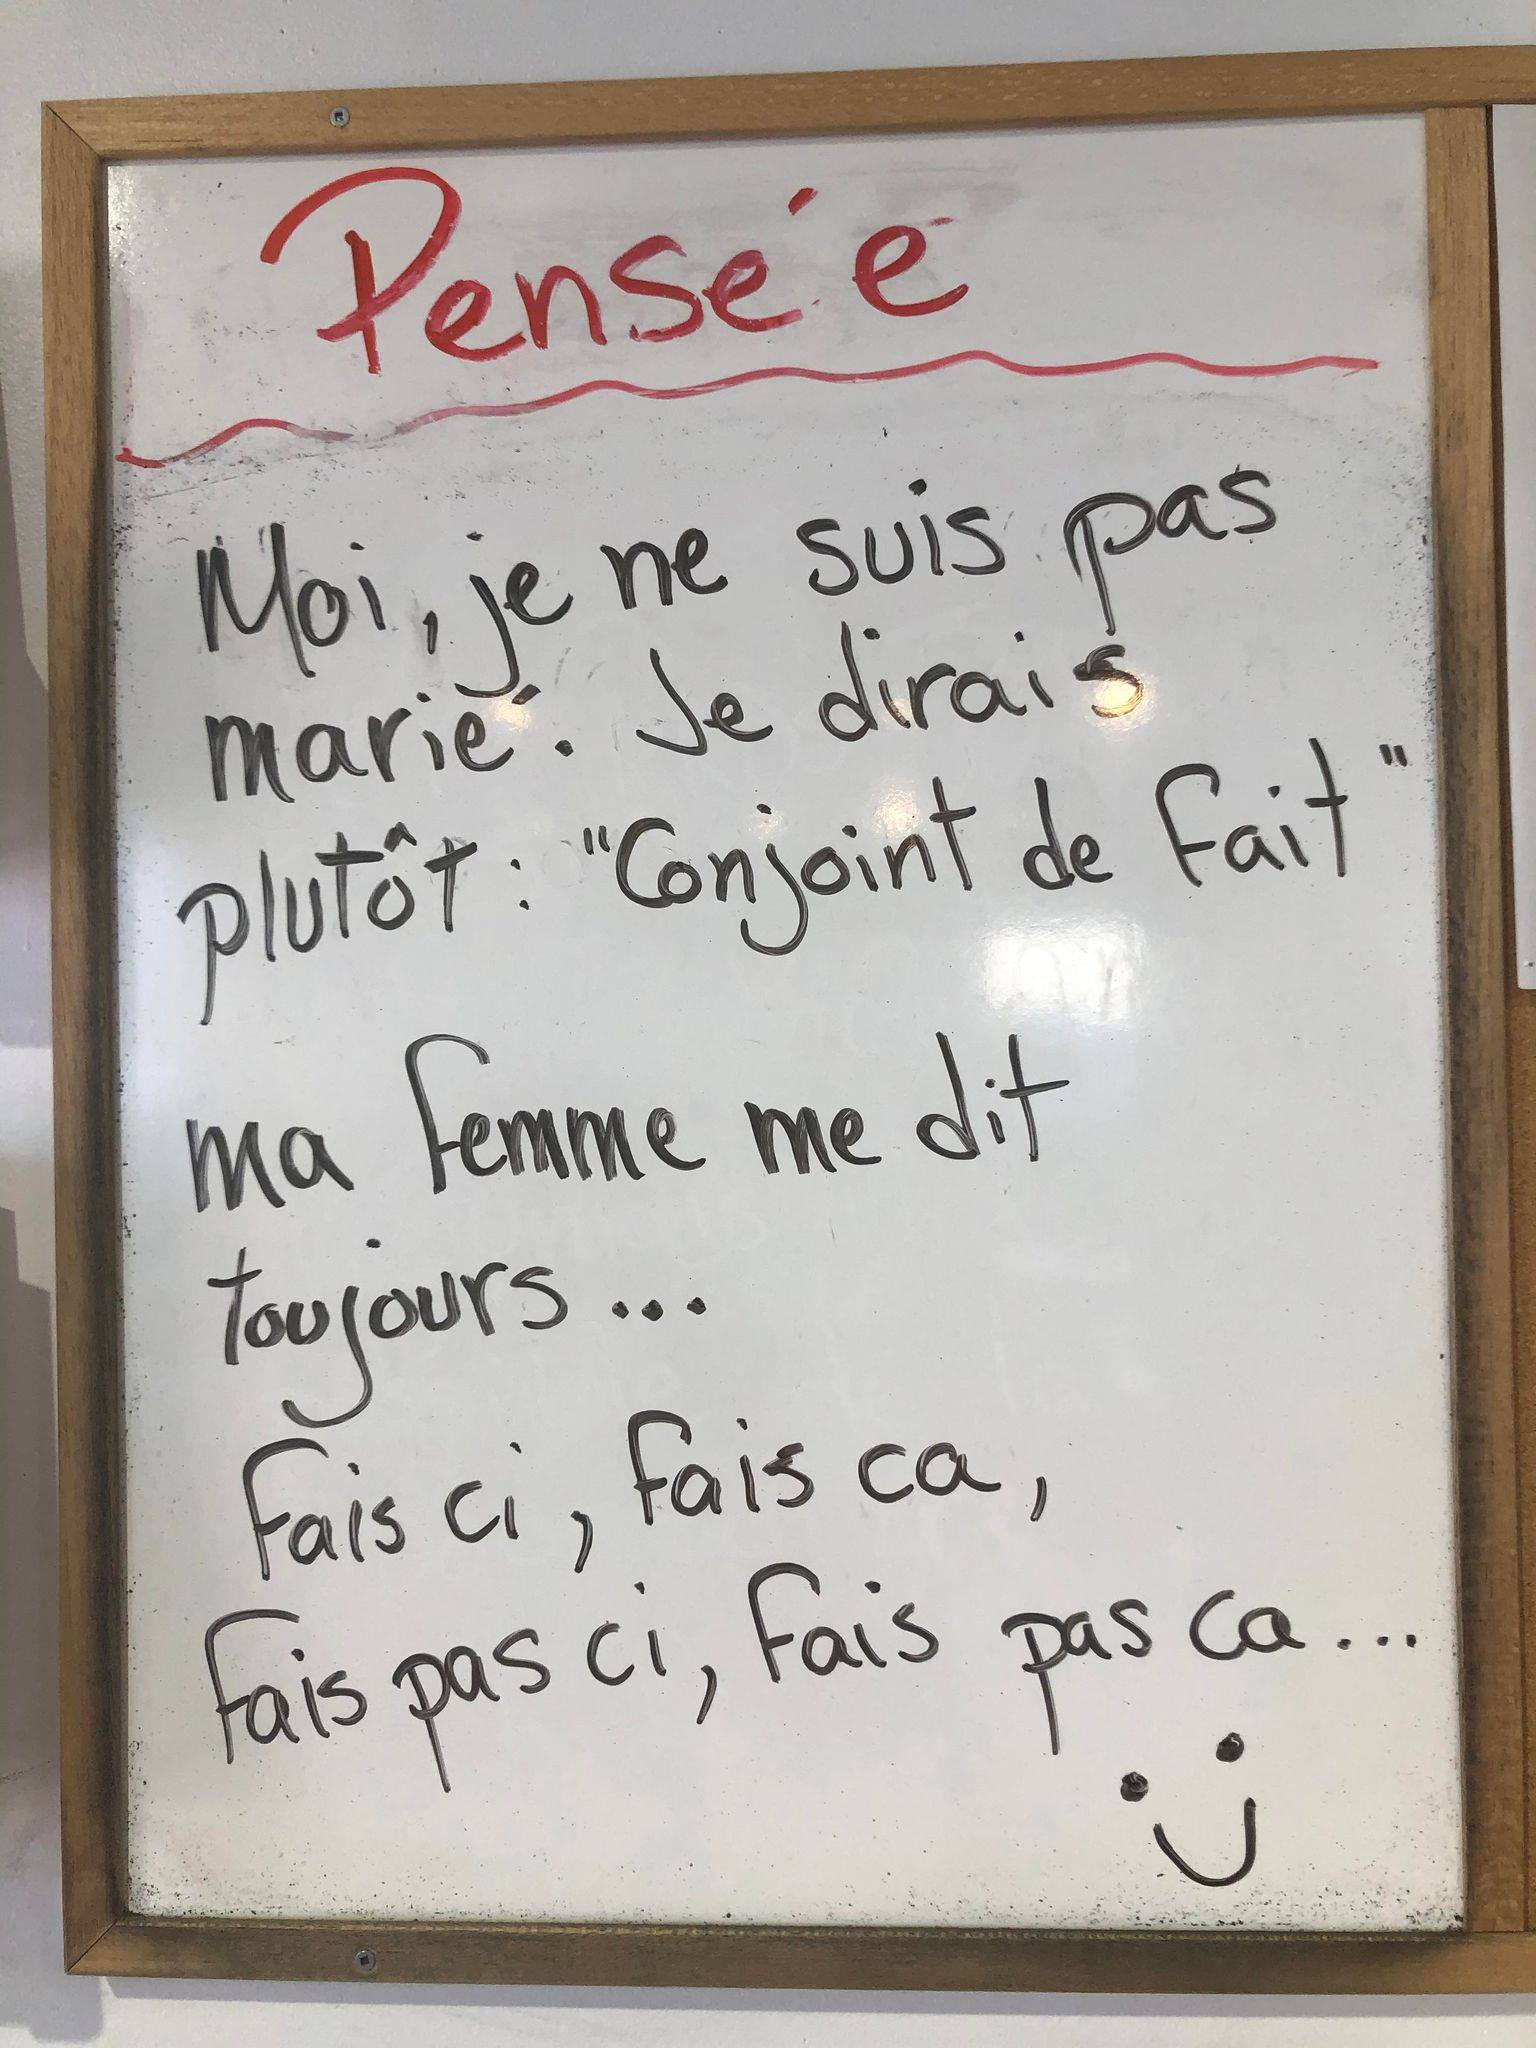 Pensée
Moi, je ne suis pas
marié. Je dirais
plutôt : "Conjoint de fait"
ma femme me dit
toujours...
Fais ci, fais ca,
Fais pas ci, fais pas ca...